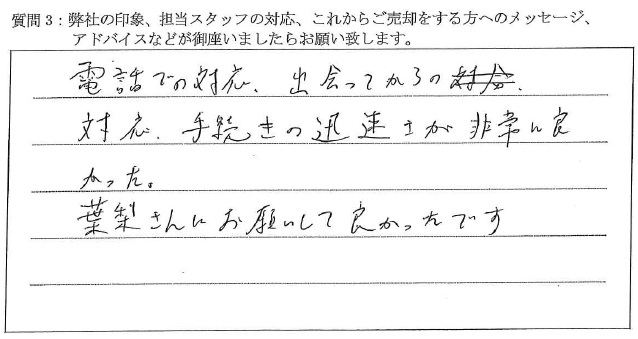 質問3：弊社の印象、担当スタッフの対応、これからご売却をする方へのメッセージ、
アドバイスなどが御座いましたらお願い致します。
電話での対応、出会ってからの
対応、手続きの迅速さが非常に良
かった。
葉梨さんにお願いして良かったです